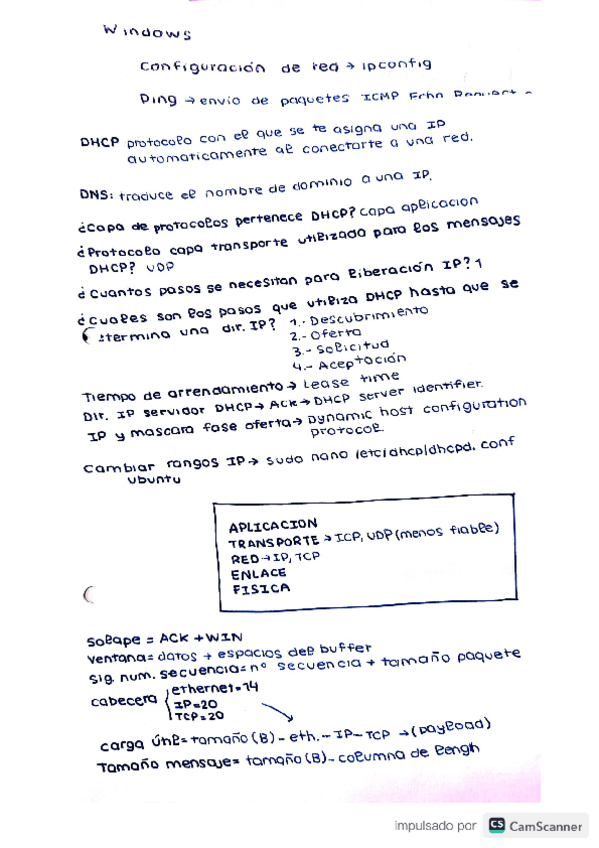 Windows
Configuración de red → ipconfig
Ping → envio de paquetes ICMP
DHCP protocolo con el que se te asigna una IP
automaticamente al conectarte a una red.
DNS: traduce el nombre de dominio a una IP.
¿Capa de protocolos pertenece DHCP? capa aplicacion
¿Protocolo capa transporte utilizada para los mensajes
DHCP? UDP
¿Cuantos pasos se necesitan para liberación IP? 1
¿Cuales son los pasos que utiliza DHCP hasta que se
termina una dir. IP? 1.- Descubrimiento
2.- Oferta
3.- Solicitud
4.- Aceptación
Tiempo de arrendamiento → Lease time
Dir. IP servidor DHCP → Ack → DHCP server identifier.
IP y mascara fase oferta → Dynamic host configuration
protocol.
Cambiar rangos IP → sudo nano /etc/dhcp/dhcpd.conf
ubuntu
APLICACION
TRANSPORTE → ICP, UDP (menos fiable)
RED → IP, TCP
ENLACE
FISICA
Solape = ACK + WIN
Ventana = datos → espacios del buffer
Sig. num. secuencia = nº secuencia + tamaño paquete
cabecera ethernet = 14
IP = 20
TCP = 20
carga útil = tamaño (B) - eth. - IP - TCP → (payload)
Tamaño mensaje = tamaño (B) - columna de length
impulsado por CS CamScanner